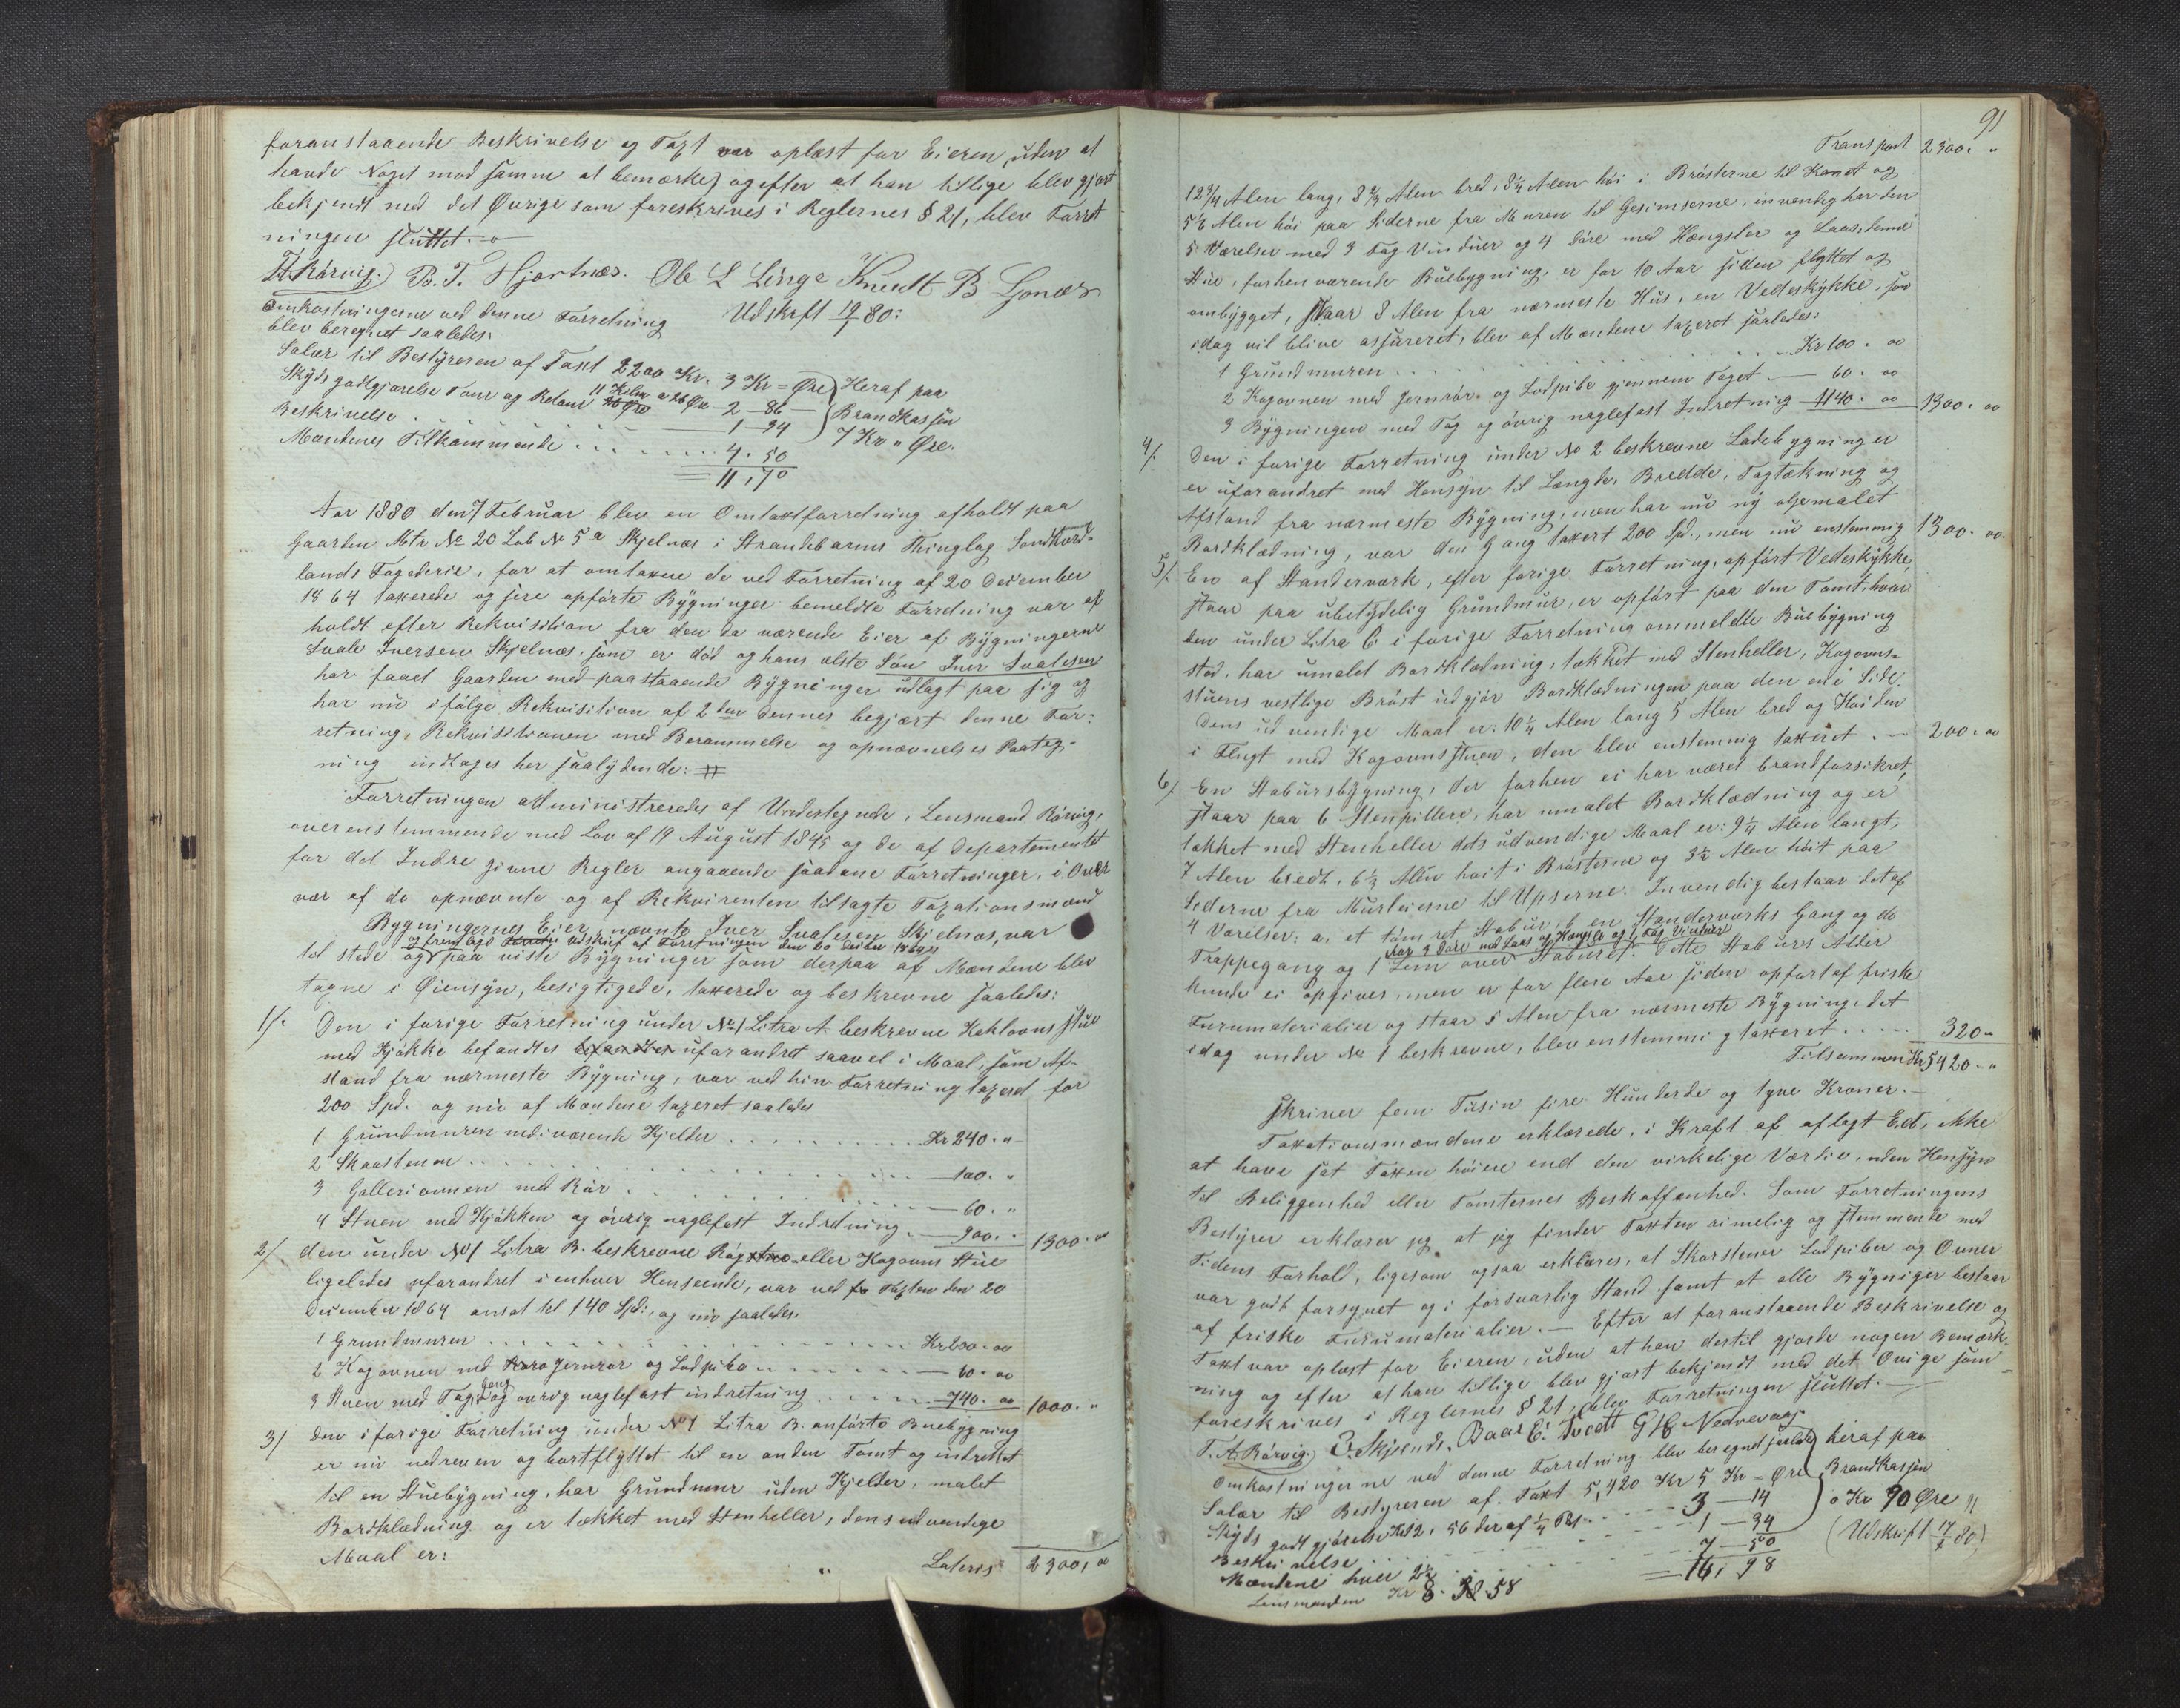 foranstaaende Beskrivelse og Taxt var oplæst for Eieren, uden at
havde Noget mod samme at bemærke, og efter at han tillige blev gjort
bekjendt med det Øvrige som foreskrives i Reglernes § 21, blev Forret
ningen sluttet.
Rørvig. B. T. Hjortnæs. Ole L Linga Knudt B Lonæs
Omkostningerne ved denne Forretning Udskrft 19/1 80.
blev beregnet saaledes:
Salær til Bestyreren af Taxt 2200 Kr. 3 Kr = Øre Heraf paa
Skyds godtgjørelse Tour og Retour 11 Kilm a 26 Øre 2 - 86 Brandkassen
Beskrivelse . 1 - 34 7 Kr " Øre.
Mændenes Tilkommende . . . . . . 4. 50
11,70
Aar 1880 den 7 Februar blev en Omtaxtforretning afholdt paa
Gaarden Mtr No 20 Lob No 5 a Skjelnæs i Strandebarms Thinglag Søndhord-
lands Fogederie, for at omtaxere de ved Forretning af 20 December
1864 taxerede og sere opførte Bygninger bemeldte Forretning var af
holdt efter Rekvisition fra den da værende Eier af Bygningerne
Svale Iversen Skjelnæs, som er død og hans ælste Søn Iver Svalesen
har faaet Gaarden med paastaaende Bygninger udlagt paa sig og
har nu ifølge Rekvisition af 2den dennes begjært denne For-
retning, Rekvisitionen med Berammelse og opnævnelses Paateg-
ning indtages her saalydende: #
Forretningen administreredes af Undertegnede, Lensmand Rørvig,
overenstemmende med Lov af 19 August 1845 og de af Departemente
for det Indre givne Regler angaaende saadane Forretninger, i Over
vær af de opnævnte og af Rekvirenten tilsagte Taxationsmænd
Bygningernes Eier, nævnte Iver Svalesen Skjelnæs, var
og fremlagde Udskrift af Forretningen den 20 Decbr 1864
til stede og paa viste Bygninger som derpaa af Mændene blev
tagne i Øiensyn, besigtigede, taxerede og beskrevne saaledes:
1/. Den i forige Forretning under No 1 Litra A. beskrevne Kakloonsstue
med Kjøkke befandtes befandtes uforandret saavel i Maal, som Af-
stand fra nærmeste Bygning, var ved hin Forretning taxeret for
200 Spd. og nu af Mændene taxeret saaledes
1 Grundmuren med værende Kjelder . . . . Kr 240. "
2 Skaastenen . . . . 100. "
3 Galleriovnen med Rør . . . . 60. "
4 Stuen med Kjøkken og øvrig naglefast Indretning . 900. " 1300. oo
2/. den under No 1 Litra B. beskrevne Røgstue eller Kogovns Stue
ligeledes uforandret i enhver Henseende, var ved Taxten den 20
December 1864 ansat til 140 Spd., og nu saaledes
1 Grundmuren . . . . Kr 200. oo
2 Kogovnen med Jernrør og Lodpibe . . . . 60. oo
3 Stuen med Tag, Gang og øvrig naglefast indretning . . . . 740. oo 1000. "
3/ Den i forige Forretning under No 1 Litra B. anførte Buebygning
er nu nedreven og bortflyttet til en anden Tomt og indrettet
til en Stuebygning, har Grundmur uden Kjelder, malet
Bordklædning og er tækket med Stenheller, dens udvendige
Maal er:
Lateris: 2300, oo
91
Transport 2300. "
12 3/4 Alen lang, 8 2/3 Alen bred, 8 1/4 Alen høi i Brøsterne til Kanet og
5 1/2 Alen høi paa Siderne fra Muren til Gesimserne, invendig har den
5 Værelser med 9 Fag Vinduer og 4 Døre med Hængsler og Laas, denne
Stue, forhenværende Buebygning, er for 10 Aar siden flyttet og
ombygget, staar 8 Alen fra nærmeste Hus, en Vedeskykke, som
idag vil blive assureret, blev af Mændene taxeret saaledes:
1 Grundmuren . . . . Kr 100. oo
2 Kogovnen med Jernrør og Lodpibe gjennem Taget 60. oo
3 Bygningen med Tag og øvrig naglefast Indretning 1140. oo 1300. oo
4/. Den i forige Forretning under No 2 beskrevne Ladebygning er
er uforandret med Hensyn til Længde, Bredde, Tagtækning og
Afstand fra nærmeste Bygning, men har nu ny oljemalet
Bordklædning, var den Gang taxert 200 Spd., men nu enstemmig 1300. oo.
5/. En af Standerværk, efter forige Forretning, opført Vedeskykke,
staar paa ubetydelig Grundmur, er opført paa den Tomt, hvor
den under Litra C i forige Forretning ommeldte Buebygning
stod, har umalet Bordklædning, tækket med Stenheller, Kogovns-
stuens vestlige Brøst udgjør Bordklædningen paa den ene Side.
Dens udvendige Maal er: 10 1/4 Alen lang 5 Alen bred og Høiden
i Flugt med Kogovnsstuen, den blev enstemmig taxeret . . 200. oo
6/. En Stabursbygning, der forhen ei har været brandforsikret,
staar paa 6 Stenpillere, har umalet Bordklædning og er
takket med Stenheller dets udvendige Maal er: 9 1/4 Alen langt,
7 Alen bredt, 6 1/3 Alen høit i Brøsterne og 3 1/2 Alen høit paa
Siderne fra Murleierne til Upserne. Invendig bestaar det af
4 Værelser: a, et tømret Stabur, b en Standerværks Gang og do
har 3 Døre med Laas og Hængsler og 1 Fag Vinduer
Trappegang og 1 Lem over Staburet. Dette Staburs Alder
kunde ei opgives, men er for flere Aar siden opført af friske
Furumaterialier og staar 5 Alen fra nærmeste Bygning, det
idag under No 1 beskrevne, blev enstemmig taxeret . . . . . 320 "
Tilsammen Kr 5420. "
skriver fem Tusin fire Hunderde og tyve Kroner.—
Taxationsmændene erklærede, i Kraft af aflagt Ed, ikke
at have sat Taxten høiere end den virkelige Værdie, uden Hensyn
til Beliggenhed eller Tomternes Beskaffenhed. Som Forretningens
Bestyrer erklærer jeg at jeg finder Taxten rimelig og stemmende med
Tidens Forhold, ligesom ogsaa erklæres, at Skorstener Lodpiber og Ovner
var godt forsynet og i forsvarlig Stand samt at alle Bygninger bestaar
af friske Furumaterialier.— Efter at foranstaaende Beskrivelse og
Taxt var oplæst for Eieren, uden at han dertil gjorde nogen Bemærk-
ning og efter at han tillige blev gjort bekjendt med det Øvrige som
foreskrives i Reglernes § 21, blev Forretningen sluttet.—
T. A. Rørvig. Baar E. Tvedt G H Nedrevaag.
Omkostningerne ved denne Forretning blev beregnet saaledes heraf paa
Salær til Bestyreren af Taxt 5,420 Kr 5 Kr = Øre Brandkassen
Skyds godtgjørelse 3 - 14 o Kr 90 Øre
Beskrivelse . . . . 1 - 34 (Udskrift 17/2 80)
Mændene hver 2 1/2 . . . 7 - 50
16, 98
Lensmanden Kr 8. 58